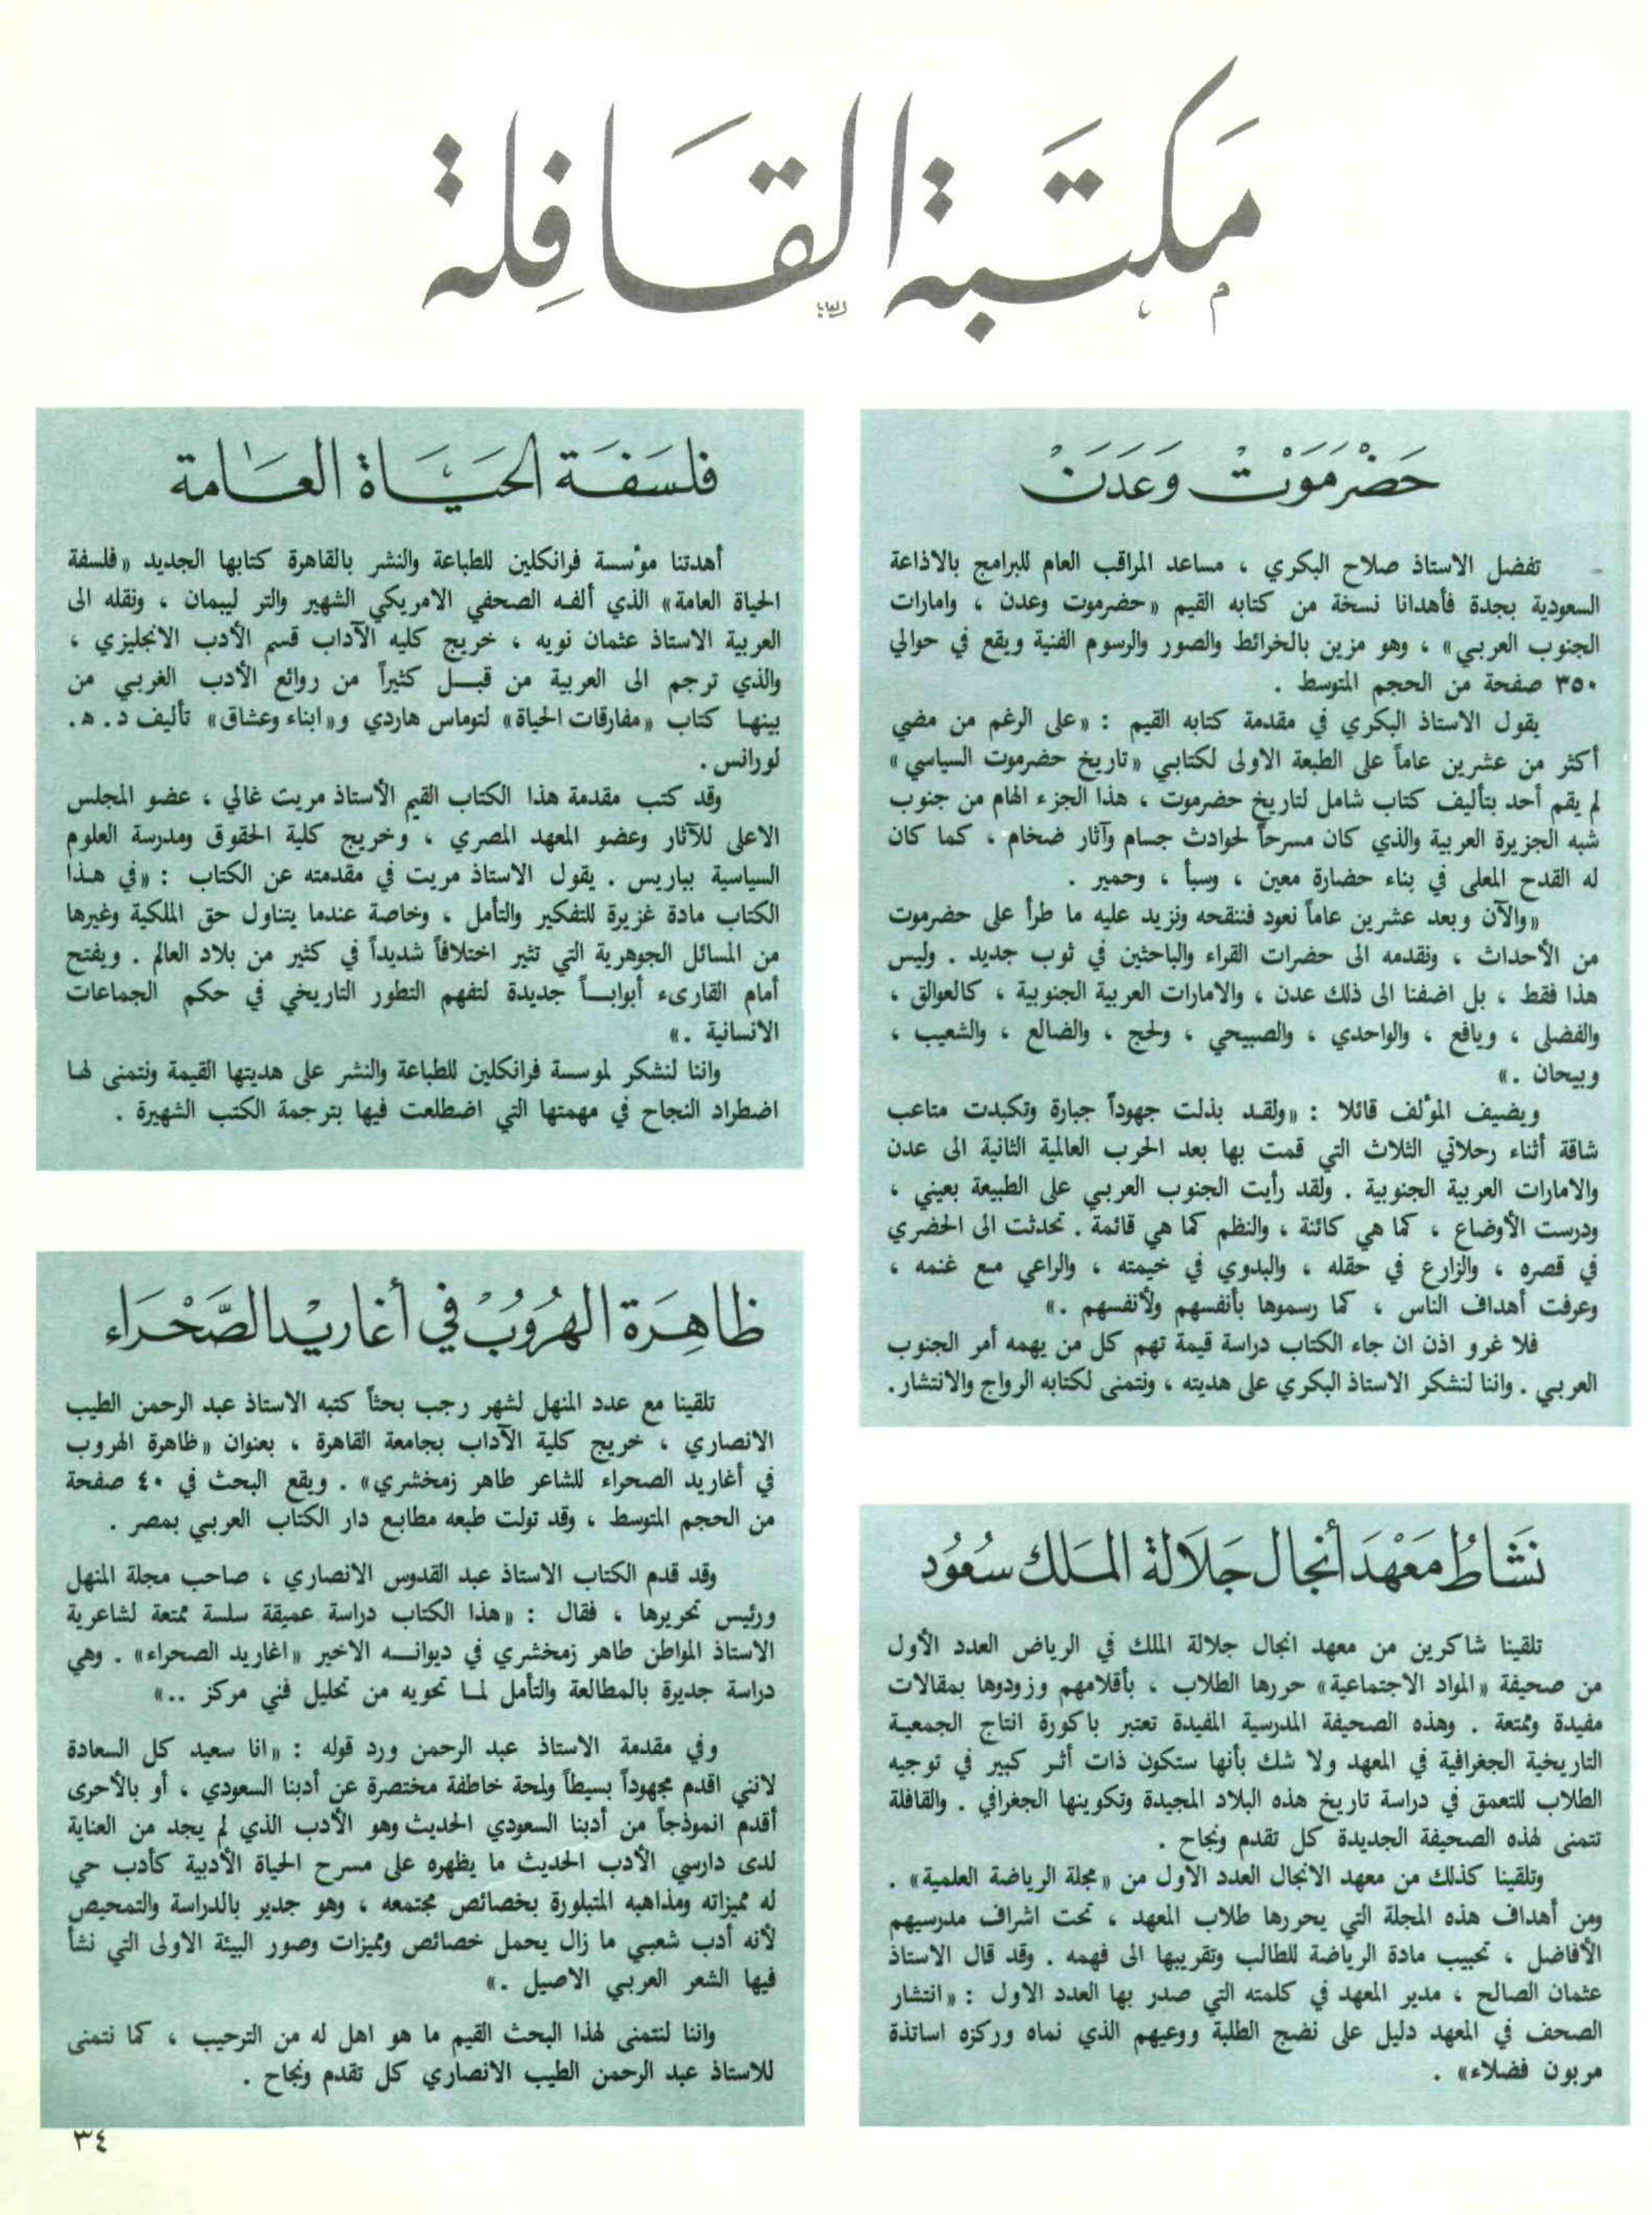 مَكتَبة القَافِلة
حَضْرَمَوْت وَعَدَنْ
تفضل الاستاذ صلاح البكري ، مساعد المراقب العام للبرامج بالاذاعة
السعودية بجدة فأهدانا نسخة من كتابه القيم «حضرموت وعدن ، وامارات
الجنوب العربي» ، وهو مزين بالخرائط والصور والرسوم الفنية ويقع في حوالي
٣٥٠ صفحة من الحجم المتوسط .
يقول الاستاذ البكري في مقدمة كتابه القيم : «على الرغم من مضي
أكثر من عشرين عاماً على الطبعة الاولى لكتابي «تاريخ حضرموت السياسي»
لم يقم أحد بتأليف كتاب شامل لتاريخ حضرموت ، هذا الجزء الهام من جنوب
شبه الجزيرة العربية والذي كان مسرحاً لحوادث جسام وآثار ضخام ، كما كان
له القدح المعلى في بناء حضارة معين ، وسبأ ، وحمير .
«والآن وبعد عشرين عاماً نعود فننقحه ونزيد عليه ما طرأ على حضرموت
من الأحداث ، ونقدمه الى حضرات القراء والباحثين في ثوب جديد . وليس
هذا فقط ، بل اضفنا الى ذلك عدن ، والامارات العربية الجنوبية ، كالعوالق ،
والفضلى ، ويافع ، والواحدي ، والصبيحي ، ولحج ، والضالع ، والشعيب ،
وبيحان .»
ويضيف المؤلف قائلا : «ولقد بذلت جهوداً جبارة وتكبدت متاعب
شاقة أثناء رحلاتي الثلاث التي قمت بها بعد الحرب العالمية الثانية الى عدن
والامارات العربية الجنوبية . ولقد رأيت الجنوب العربي على الطبيعة بعيني ،
ودرست الأوضاع ، كما هي كائنة ، والنظم كما هي قائمة . تحدثت الى الحضري
في قصره ، والزارع في حقله ، والبدوي في خيمته ، والراعي مع غنمه ،
وعرفت أهداف الناس ، كما رسموها بأنفسهم ولأنفسهم .»
فلا غرو اذن ان جاء الكتاب دراسة قيمة تهم كل من يهمه أمر الجنوب
العربي . واننا لنشكر الاستاذ البكري على هديته ، ونتمنى لكتابه الرواج والانتشار.
نَشَاطُ مَعْهَد أنجال جَلَالة المَلك سُعُود
تلقينا شاكرين من معهد انجال جلالة الملك في الرياض العدد الأول
من صحيفة «المواد الاجتماعية» حررها الطلاب ، بأقلامهم وزودوها بمقالات
مفيدة وممتعة . وهذه الصحيفة المدرسية المفيدة تعتبر باكورة انتاج الجمعية
التاريخية الجغرافية في المعهد ولا شك بأنها ستكون ذات أثر كبير في توجيه
الطلاب للتعمق في دراسة تاريخ هذه البلاد المجيدة وتكوينها الجغرافي . والقافلة
تتمنى لهذه الصحيفة الجديدة كل تقدم ونجاح .
وتلقينا كذلك من معهد الانجال العدد الاول من «مجلة الرياضة العلمية» .
ومن أهداف هذه المجلة التي يحررها طلاب المعهد ، تحت اشراف مدرسيهم
الأفاضل ، تحبيب مادة الرياضة للطالب وتقريبها الى فهمه . وقد قال الاستاذ
عثمان الصالح ، مدير المعهد في كلمته التي صدر بها العدد الاول : «انتشار
الصحف في المعهد دليل على نضج الطلبة ووعيهم الذي نماه وركزه اساتذة
مربون فضلاء» .
فلسَفَة الحَيَاة العَامة
أهدتنا مؤسسة فرانكلين للطباعة والنشر بالقاهرة كتابها الجديد «فلسفة
الحياة العامة» الذي ألفه الصحفي الامريكي الشهير والتر ليبمان ، ونقله الى
العربية الاستاذ عثمان نويه ، خريج كليه الآداب قسم الأدب الانجليزي ،
والذي ترجم الى العربية من قبل كثيراً من روائع الأدب الغربي من
بينها كتاب «مفارقات الحياة» لتوماس هاردي و«ابناء وعشاق» تأليف د. ه.
لورانس .
وقد كتب مقدمة هذا الكتاب القيم الأستاذ مريت غالي ، عضو المجلس
الاعلى للآثار وعضو المعهد المصري ، وخريج كلية الحقوق ومدرسة العلوم
السياسية بباريس . يقول الاستاذ مريت في مقدمته عن الكتاب : «في هذا
الكتاب مادة غزيرة للتفكير والتأمل ، وخاصة عندما يتناول حق الملكية وغيرها
من المسائل الجوهرية التي تثير اختلافاً شديداً في كثير من بلاد العالم . ويفتح
أمام القارىء أبواباً جديدة لتفهم التطور التاريخي في حكم الجماعات
الانسانية .»
واننا لنشكر لموسسة فرانكلين للطباعة والنشر على هديتها القيمة ونتمنى لها
اضطراد النجاح في مهمتها التي اضطلعت فيها بترجمة الكتب الشهيرة .
ظاهِرَة الهُرُوبْ في أغاريد الصَّحْراء
تلقينا مع عدد المنهل لشهر رجب بحثاً كتبه الاستاذ عبد الرحمن الطيب
الانصاري ، خريج كلية الآداب بجامعة القاهرة ، بعنوان «ظاهرة الهروب
في أغاريد الصحراء للشاعر طاهر زمخشري» . ويقع البحث في ٤٠ صفحة
من الحجم المتوسط ، وقد تولت طبعه مطابع دار الكتاب العربي بمصر .
وقد قدم الكتاب الاستاذ عبد القدوس الانصاري ، صاحب مجلة المنهل
ورئيس تحريرها ، فقال : «هذا الكتاب دراسة عميقة سلسة ممتعة لشاعرية
الاستاذ المواطن طاهر زمخشري في ديوانه الاخير «اغاريد الصحراء» . وهي
دراسة جديرة بالمطالعة والتأمل لما تحويه من تحليل فني مركز ..»
وفي مقدمة الاستاذ عبد الرحمن ورد قوله : «انا سعيد كل السعادة
لانني اقدم مجهوداً بسيطاً ولمحة خاطفة مختصرة عن أدبنا السعودي ، أو بالأحرى
أقدم انموذجاً من أدبنا السعودي الحديث وهو الأدب الذي لم يجد من العناية
لدى دارسي الأدب الحديث ما يظهره على مسرح الحياة الأدبية كأدب حي
له مميزاته ومذاهبه المتبلورة بخصائص مجتمعه ، وهو جدير بالدراسة والتمحيص
لأنه أدب شعبي ما زال يحمل خصائص ومميزات وصور البيئة الاولى التي نشأ
فيها الشعر العربي الاصيل .»
واننا لنتمنى لهذا البحث القيم ما هو اهل له من الترحيب ، كما نتمنى
للاستاذ عبد الرحمن الطيب الانصاري كل تقدم ونجاح .
٣٤